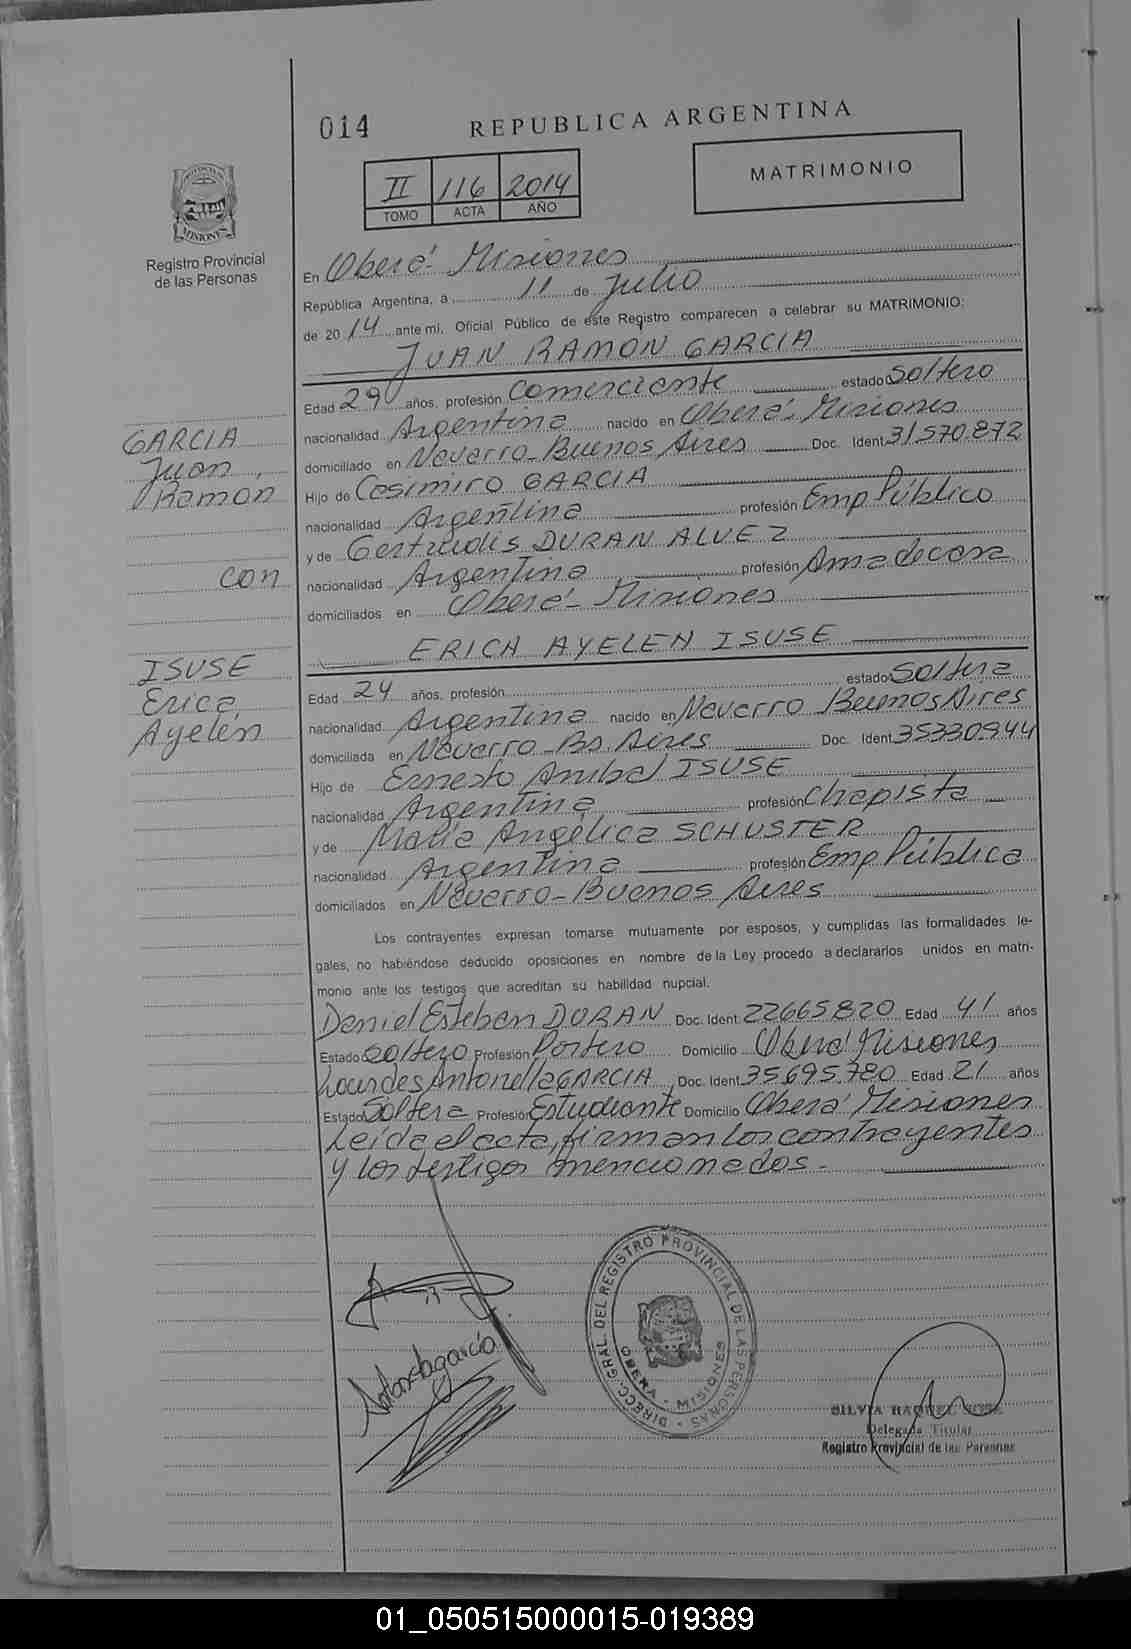 014 REPUBLICA ARGENTINA
II 116 2014
TOMO ACTA AÑO
MATRIMONIO
MISIONES
Registro Provincial
de las Personas
En Oberá - Misiones
República Argentina, a 11 de Julio
de 2014 ante mi, Oficial Público de este Registro comparecen a celebrar su MATRIMONIO:
JUAN RAMON GARCIA
Edad 29 años, profesión Comerciante estado Soltero
nacionalidad Argentina nacido en Oberá - Misiones
domiciliado en Navarro - Buenos Aires Doc. Ident. 31570.872
Hijo de Casimiro GARCIA
nacionalidad Argentina profesión Emp Público
y de Gertrudis DURAN ALVEZ
nacionalidad Argentina profesión Ama de casa
domiciliados en Oberá - Misiones
ERICA AYELEN ISUSE
Edad 24 años, profesión estado Soltera
nacionalidad Argentina nacido en Navarro Buenos Aires
domiciliada en Navarro - Bs. Aires Doc. Ident. 35330944
Hijo de Ernesto Anibal ISUSE
nacionalidad Argentina profesión Chapista
y de María Angélica SCHUSTER
nacionalidad Argentina profesión Emp Pública
domiciliados en Navarro - Buenos Aires
GARCIA
Juan
Ramon
con
ISUSE
Erica
Ayelén
Los contrayentes expresan tomarse mutuamente por esposos, y cumplidas las formalidades le-
gales, no habiéndose deducido oposiciones en nombre de la Ley procedo a declararlos unidos en matri-
monio ante los testigos que acreditan su habilidad nupcial.
Daniel Esteban DURAN Doc. Ident. 22665820 Edad 41 años
Estado Soltero Profesión Portero Domicilio Oberá Misiones
Lourdes Antonella GARCIA Doc. Ident. 35695.780 Edad 21 años
Estado Soltera Profesión Estudiante Domicilio Oberá Misiones
Leída el acta, firman los contrayentes
y los testigos mencionados.-
DIRECC. GRAL. DEL REGISTRO PROVINCIAL DE LAS PERSONAS
OBERA - MISIONES
SILVIA RAQUEL
Delegada Titular
Registro Provincial de las Personas
01_050515000015-019389